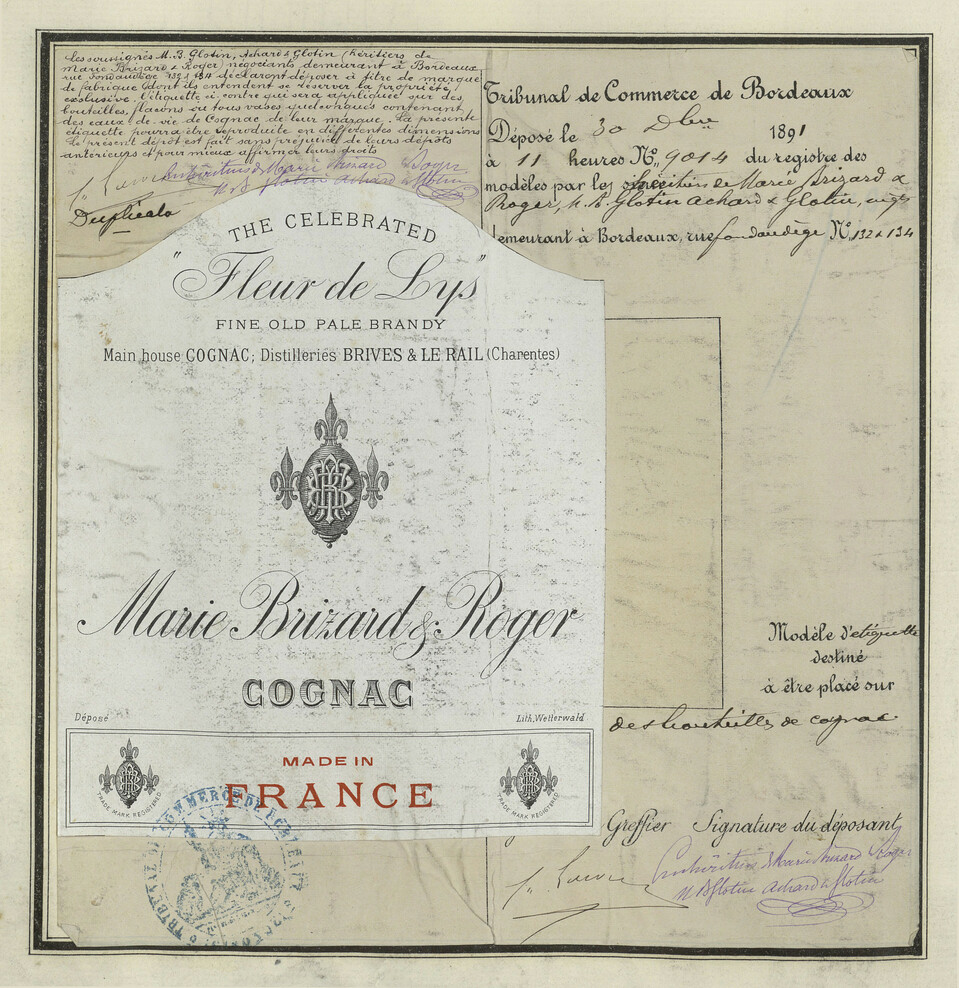 Les soussignés M. B. Glotin, Achard & Glotin (héritiers de
Marie Brizard & Roger) négociants, demeurant à Bordeaux
rue Fondaudège 132 & 134 déclarent déposer à titre de marque
de fabrique (dont ils entendent se réserver la propriété
exclusive, l'étiquette ci-contre qui sera appliquée sur des
bouteilles, flacons ou tous vases quelconques contenant
des eaux-de-vie de Cognac de leur marque. La présente
étiquette pourra être reproduite en différentes dimensions
Le présent dépôt est fait sans préjudice de leurs dépôts
antérieurs et pour mieux affirmer leurs droits
Les héritiers de Marie Brizard & Roger
M. B. Glotin Achard & Glotin
Duplicata
Tribunal de Commerce de Bordeaux
Déposé le 30 Dbre 1891
à 11 heures No. 9014 du registre des
modèles par les héritiers de Marie Brizard &
Roger, M. B. Glotin Achard & Glotin,
demeurant à Bordeaux, rue fondaudège No. 132 & 134
THE CELEBRATED
"Fleur de Lys"
FINE OLD PALE BRANDY
Main house COGNAC; Distilleries BRIVES & LE RAIL (Charentes)
Marie Brizard & Roger
COGNAC
Déposé
Lith. Wetterwald
MADE IN
FRANCE
TRADE MARK REGISTERED
TRADE MARK REGISTERED
Modèle d'étiquette
destiné
à être placé sur
des bouteilles de cognac
Greffier Signature du déposant
Les héritiers de Marie Brizard & Roger
M. B. Glotin Achard & Glotin
TRIBUNAL DE COMMERCE DE BORDEAUX